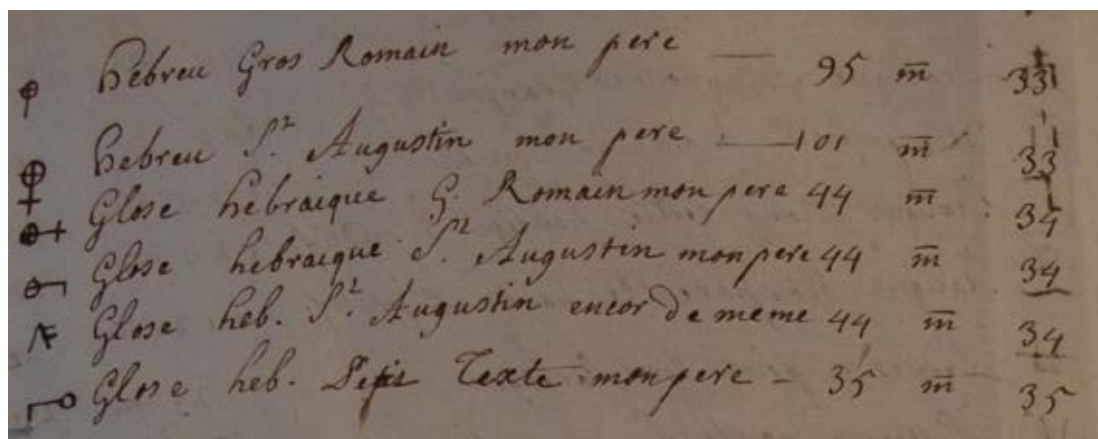 hebreu Gros Romain mon pere — 95 m̄ 33
hebreu St. Augustin mon pere — 101 m̄ 33
Glose hebraique G. Romain mon pere 44 m̄ 34
Glose hebraique St. Augustin mon pere 44 m̄ 34
Glose heb. St. Augustin encor de meme 44 m̄ 34
Glose heb. Petit Texte mon pere - 35 m̄ 35